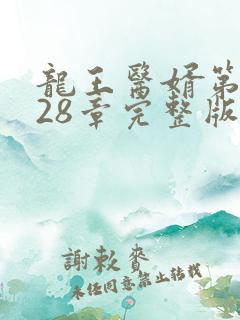 龍王醫婿第
28章完整版
謝敕賚
未任同意禁止转载